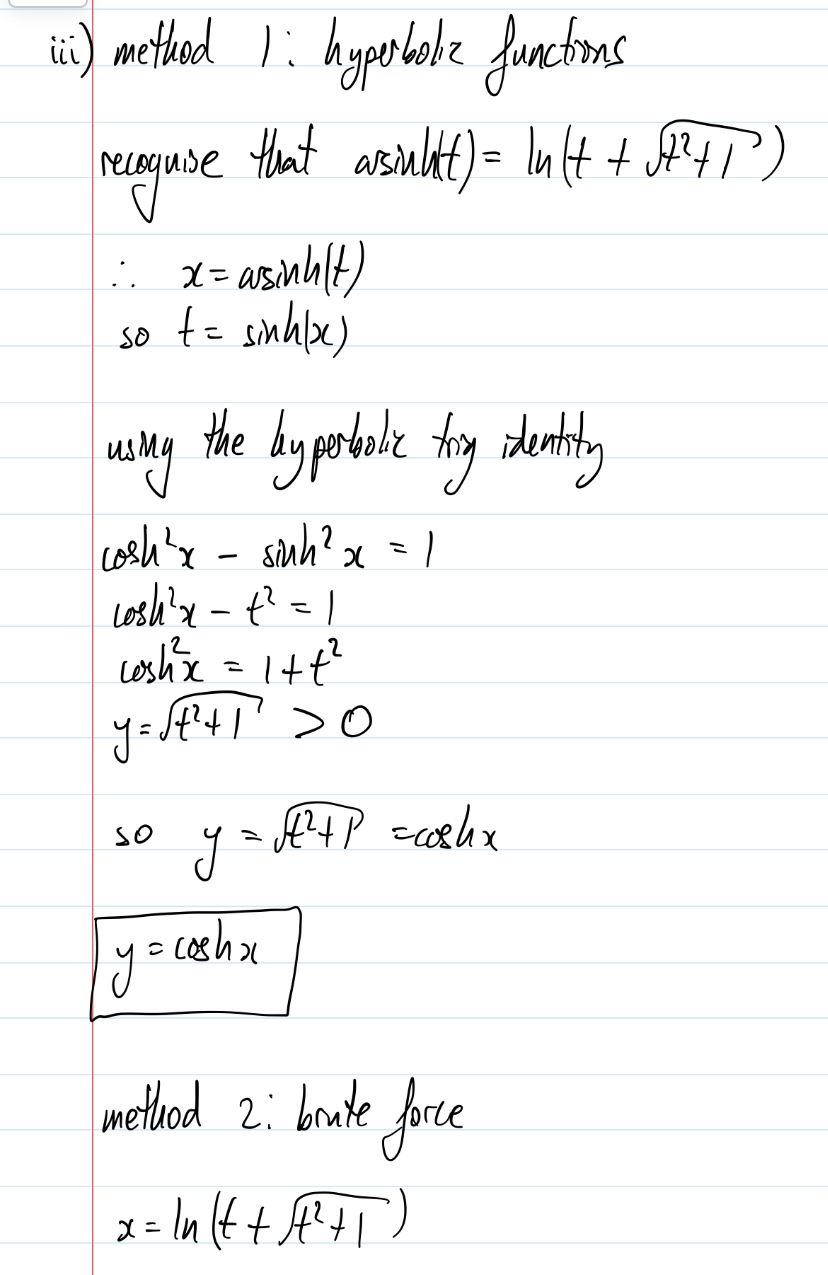 iii) method 1: hyperbolic functions
recognise that arsinh(t) = ln(t + √(t²+1))
∴ x = arsinh(t)
so t = sinh(x)
using the hyperbolic trig identity
cosh²x - sinh²x = 1
cosh²x - t² = 1
cosh²x = 1 + t²
y = √(t²+1) > 0
so y = √(t²+1) = cosh x
y = cosh x
method 2: brute force
x = ln(t + √(t²+1))